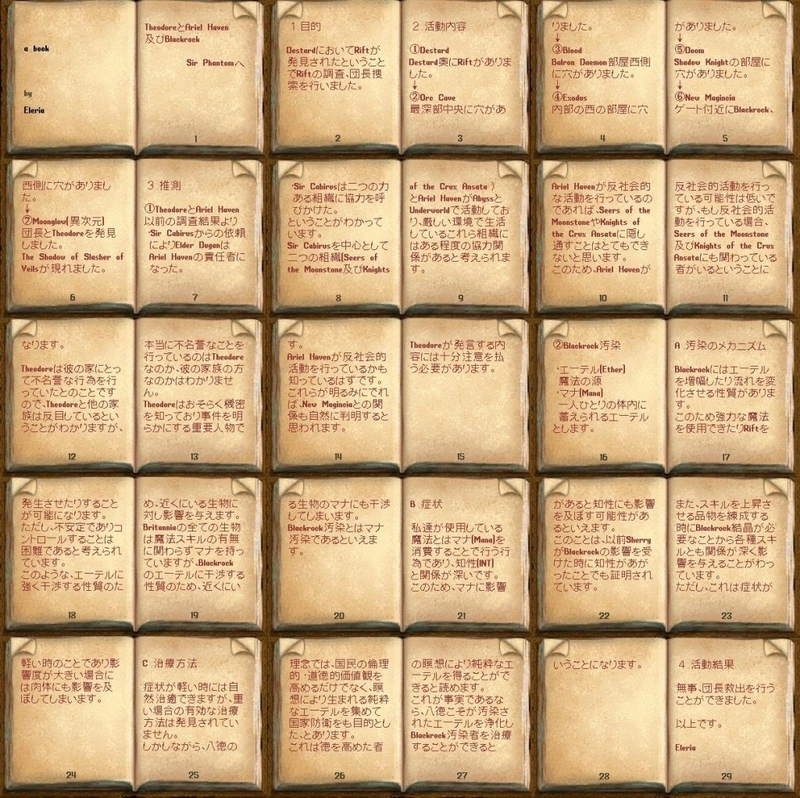 a book
by
Eleria
TheodoreとAriel Haven
及びBlackrock
Sir Phantomへ
1
1 目的
DestardにおいてRiftが
発見されたということ
でRiftの調査、団長捜
索を行いました。
2
2 活動内容
①Destard
Destard奥にRiftがありま
した。
↓
②Orc Cave
最深部中央に穴があ
3
りました。
↓
③Blood
Balron Daemon部屋西側
に穴がありました。
↓
④Exodus
内部の西の部屋に穴
4
がありました。
↓
⑤Doom
Shadow Knightの部屋に
穴がありました。
↓
⑥New Magincia
ゲート付近にBlackrock、
5
西側に穴がありまし
た。
↓
⑦Moonglow(異次元)
団長とTheodoreを発見
しました。
The Shadow of Slasher of
Veilsが現れました。
6
3 推測
①TheodoreとAriel Haven
以前の調査結果より
・Sir Cabirusからの依頼
によりElder Duganは
Ariel Havenの責任者に
なった。
7
・Sir Cabirusは二つの力
ある組織に協力を呼
びかけた。
ということがわかって
います。
Sir Cabirusを中心として
二つの組織(Seers of
the Moonstone及びKnights
8
of the Crux Ansata )
とAriel HavenがAbyssと
Underworldで活動してお
り、厳しい環境で生活
しているこれら組織に
はある程度の協力関
係があると考えられま
す。
9
Ariel Havenが反社会的
な活動を行っているの
であれば、Seers of the
MoonstoneやKnights of
the Crux Ansataに隠し
通すことはとてもでき
ないと思います。
このため、Ariel Havenが
10
反社会的な活動を行っ
ている可能性は低いで
すが、もし反社会的活
動を行っている場合、
Seers of the Moonstone
及びKnights of the Crux
Ansataにも関わっている
者がいるということに
11
なります。
Theodoreは彼の家にとっ
て不名誉な行為を行
っていたとのことです
ので、Theodoreと他の家
族は反目しているとい
うことがわかりますが、
12
本当に不名誉なことを
行っているのはTheodore
なのか、彼の家族の方
なのかはわかりませ
ん。
Theodoreはおそらく機密
を知っており事件を明
らかにする重要人物で
13
す。
Ariel Havenが反社会的
活動を行っているかも
知っているはずです。
これらが明るみにでれ
ば、New Maginciaとの関
係も自然に判明すると
思われます。
14
Theodoreが発言する内
容には十分注意を払
う必要があります。
15
②Blackrock汚染
・エーテル(Ether)
魔法の源
・マナ(Mana)
一人ひとりの体内に
蓄えられるエーテル
とします。
16
A 汚染のメカニズム
Blackrockにはエーテル
を増幅したり流れを変
化させる性質がありま
す。
このため強力な魔法
を使用できたりRiftを
17
発生させたりすること
が可能になります。
ただし、不安定でありコ
ントロールすることは
困難であると考えられ
ています。
このような、エーテルに
強く干渉する性質のた
18
め、近くにいる生物に
対し影響を与えます。
Britanniaの全ての生物
は魔法スキルの有無
に関わらずマナを持っ
ていますが、Blackrock
のエーテルに干渉する
性質のため、近くにい
19
る生物のマナにも干渉
してしまいます。
Blackrock汚染とはマナ
汚染であるといえま
す。
20
B 症状
私達が使用している
魔法とはマナ(Mana)を
消費することで行う行
為であり、知性(INT)
と関係が深いです。
このため、マナに影響
21
があると知性にも影響
を及ぼす可能性があ
るといえます。
このことは、以前Sherry
がBlackrockの影響を受
けた時に知性があが
ったことでも証明され
ています。
22
また、スキルを上昇さ
せる品物を練成する
時にBlackrock結晶が必
要なことから各種スキ
ルとも関係が深く影
響を与えることがわっ
ています。
ただし、これは症状が
23
軽い時のことであり影
響度が大きい場合に
は肉体にも影響を及
ぼしてしまいます。
24
C 治療方法
症状が軽い時には自
然治癒できますが、重
い場合の有効な治療
方法は発見されてい
ません。
しかしながら、八徳の
25
理念では、国民の倫理
的・道徳的価値観を
高めるだけでなく、瞑
想により生まれる純粋
なエーテルを集めて
国家防衛をも目的とし
た、とあります。
これは徳を高めた者
26
の瞑想により純粋なエ
ーテルを得ることがで
きると読めます。
これが事実であるな
ら、八徳こそが汚染さ
れたエーテルを浄化し
Blackrock汚染者を治療
することができると
27
いうことになります。
28
4 活動結果
無事、団長救出を行う
ことができました。
以上です。
Eleria
29